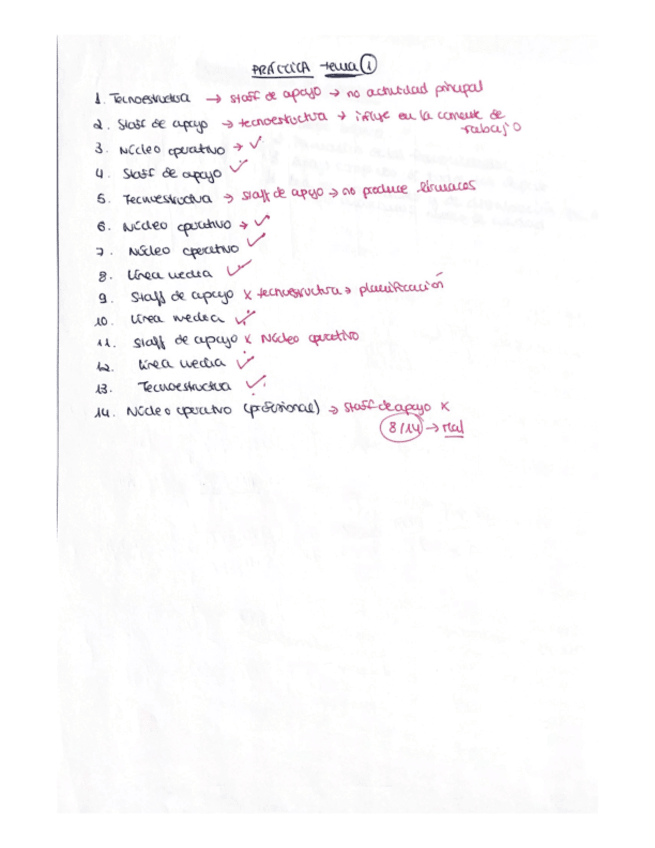 PRÁCTICA tema 1
1. Tecnoestructura → staff de apoyo → no actividad principal
2. Staff de apoyo → tecnoestructura → influye en la corriente de
trabajo
3. Núcleo operativo → ✓
4. Staff de apoyo ✓
5. Tecnoestructura → staff de apoyo → no produce fármacos
6. Núcleo operativo → ✓
7. Núcleo operativo ✓
8. Línea media ✓
9. Staff de apoyo x tecnoestructura → planificación
10. Línea media ✓
11. Staff de apoyo x Núcleo operativo
12. Línea media ✓
13. Tecnoestructura ✓
14. Núcleo operativo (profesional) → staff de apoyo x
8/14 → mal